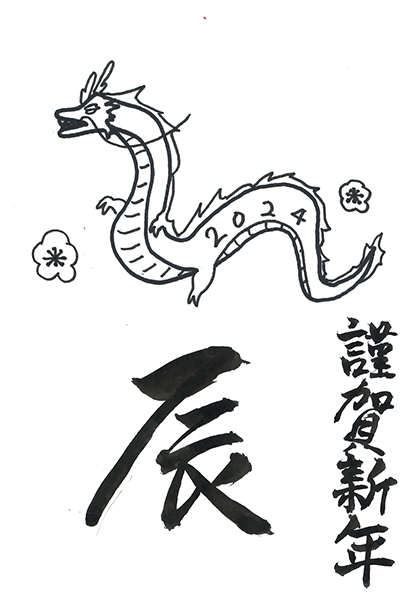 2024
辰
謹賀新年